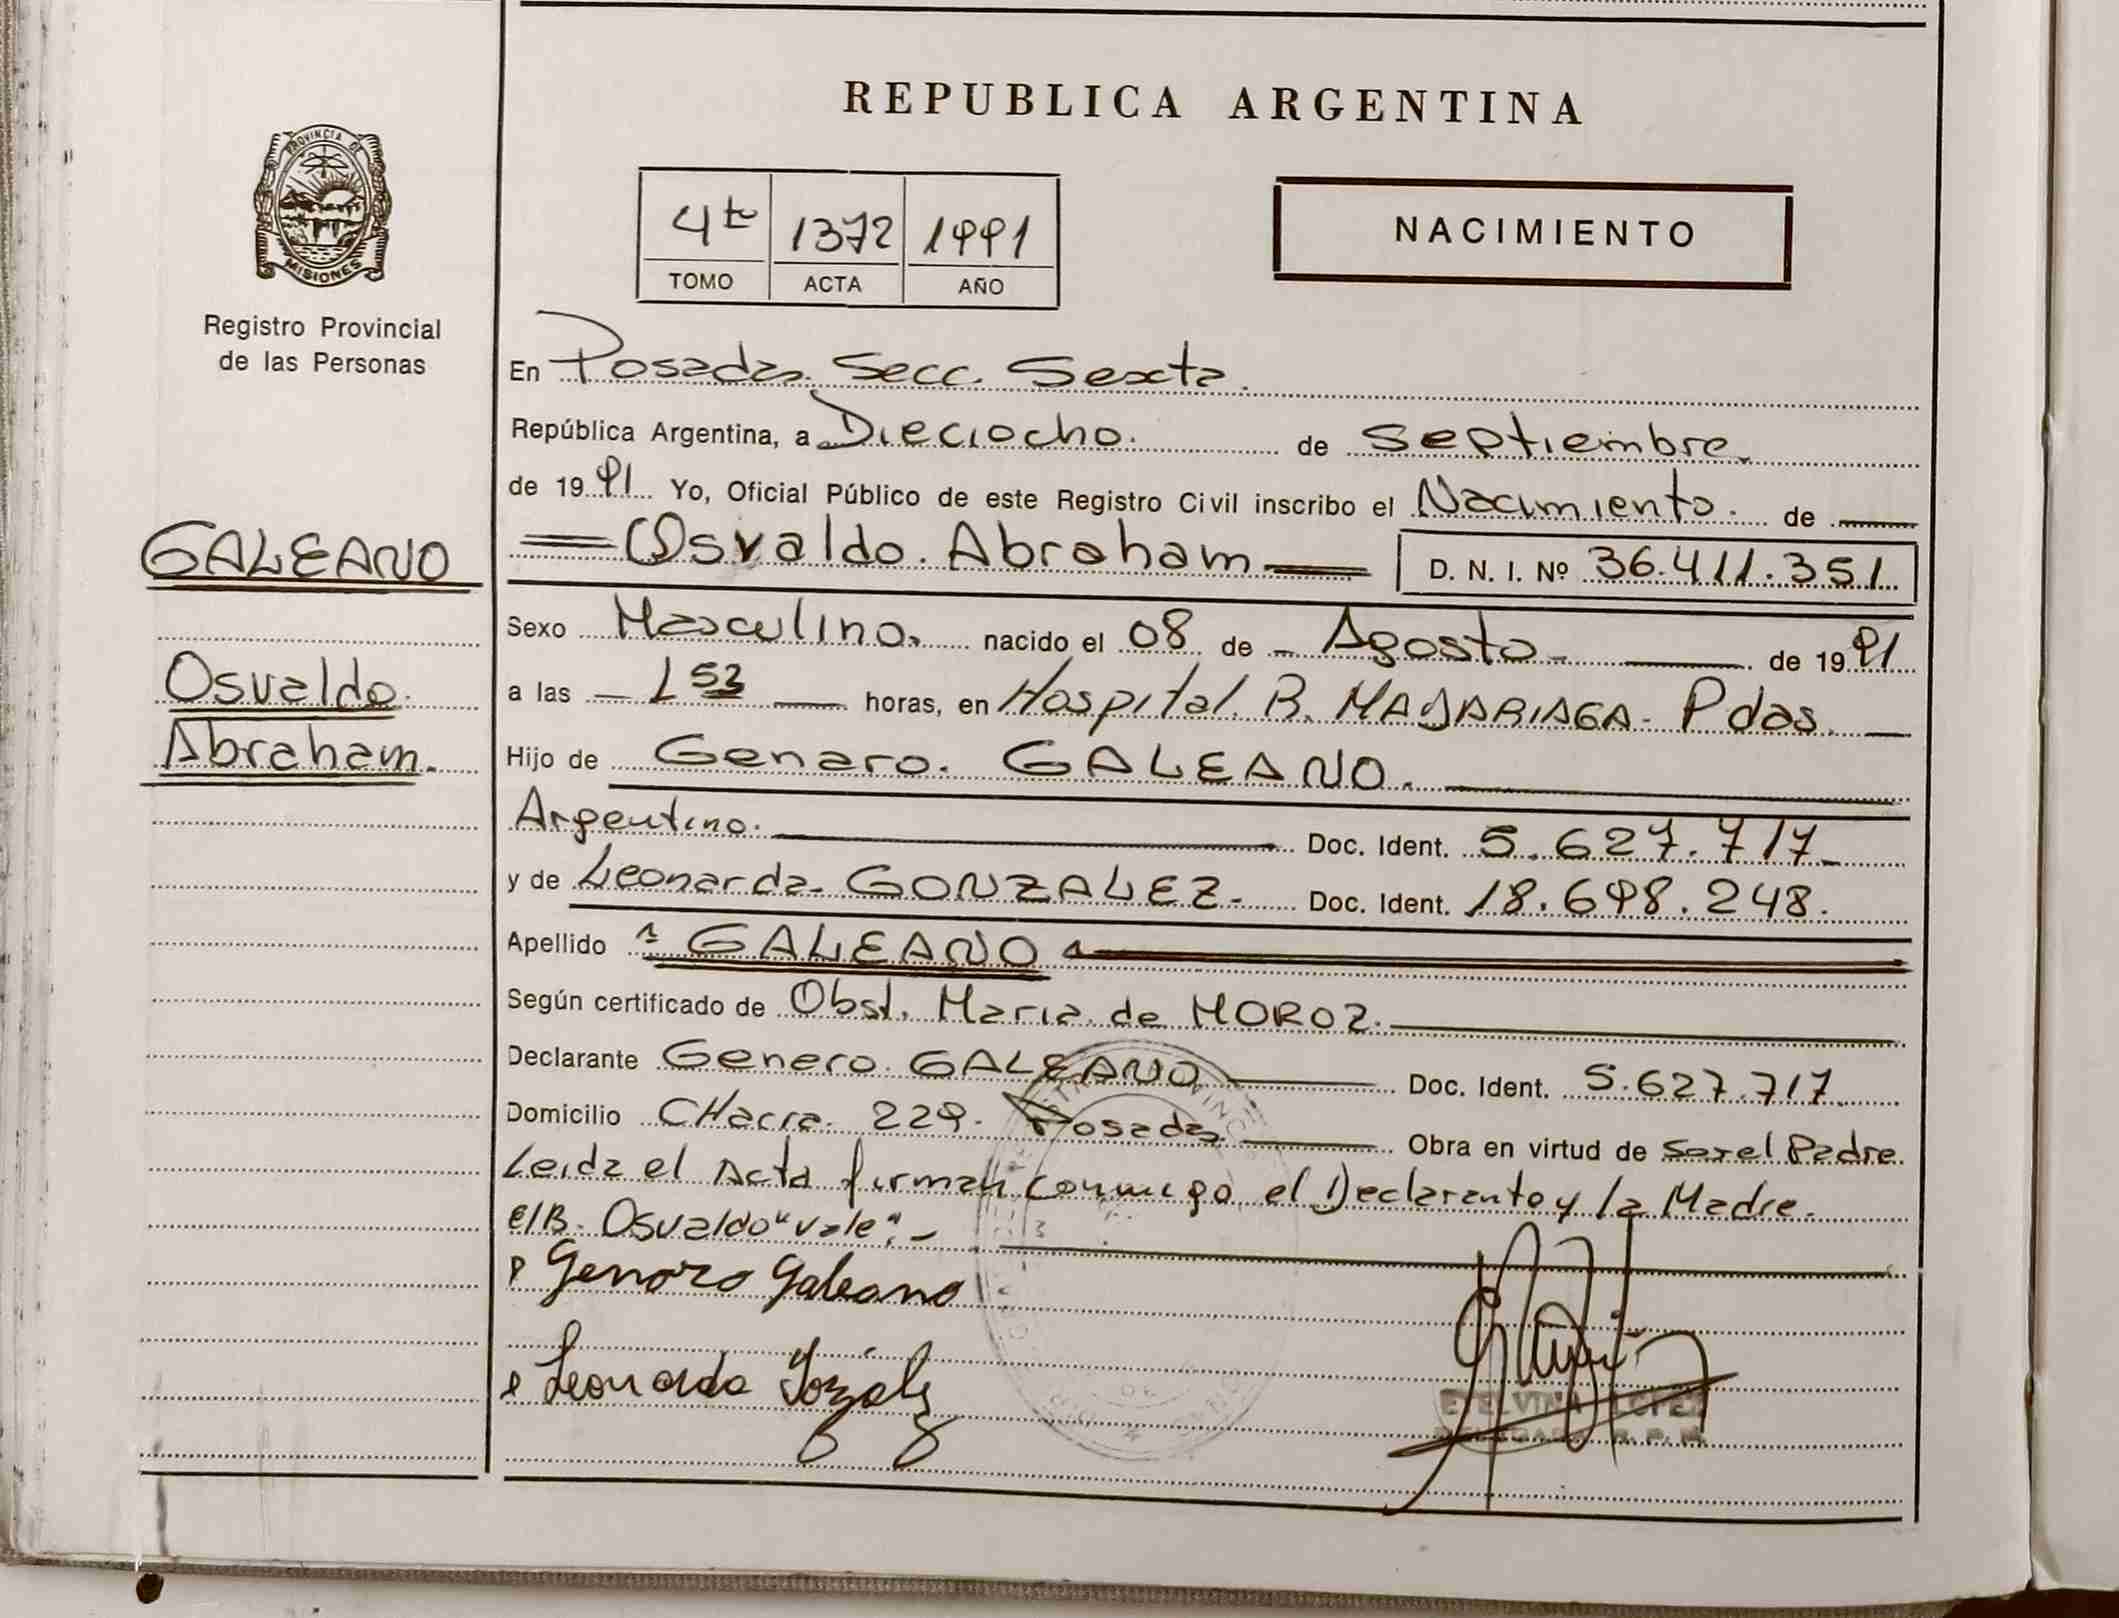 REPUBLICA ARGENTINA
PROVINCIA DE
MISIONES
Registro Provincial
de las Personas
4to 1372 1991
TOMO ACTA AÑO
NACIMIENTO
En Posadas. Secc. Sexta.
República Argentina, a Dieciocho. de Septiembre.
de 1991 Yo, Oficial Público de este Registro Civil inscribo el Nacimiento. de
Osvaldo. Abraham D. N. I. Nº 36.411.351
GALEANO
Osvaldo.
Abraham.
Sexo Masculino. nacido el 08 de Agosto de 1991
a las 1 53 horas, en Hospital. R. MADARIAGA. Pdas.
Hijo de Genaro. GALEANO.
Argentino. Doc. Ident. 5.627.717
y de Leonarda GONZALEZ. Doc. Ident. 18.698.248.
Apellido GALEANO
Según certificado de Obst. Maria de MOROZ.
Declarante Genero. GALEANO Doc. Ident. 5.627.717
Domicilio CHacra. 229. Posadas Obra en virtud de Ser el Padre.
Leida el Acta firman conmigo el Declarante y la Madre.
E/B. Osvaldo "vale".-
Genaro Galeano
Leonarda
ETELVINA LOPEZ